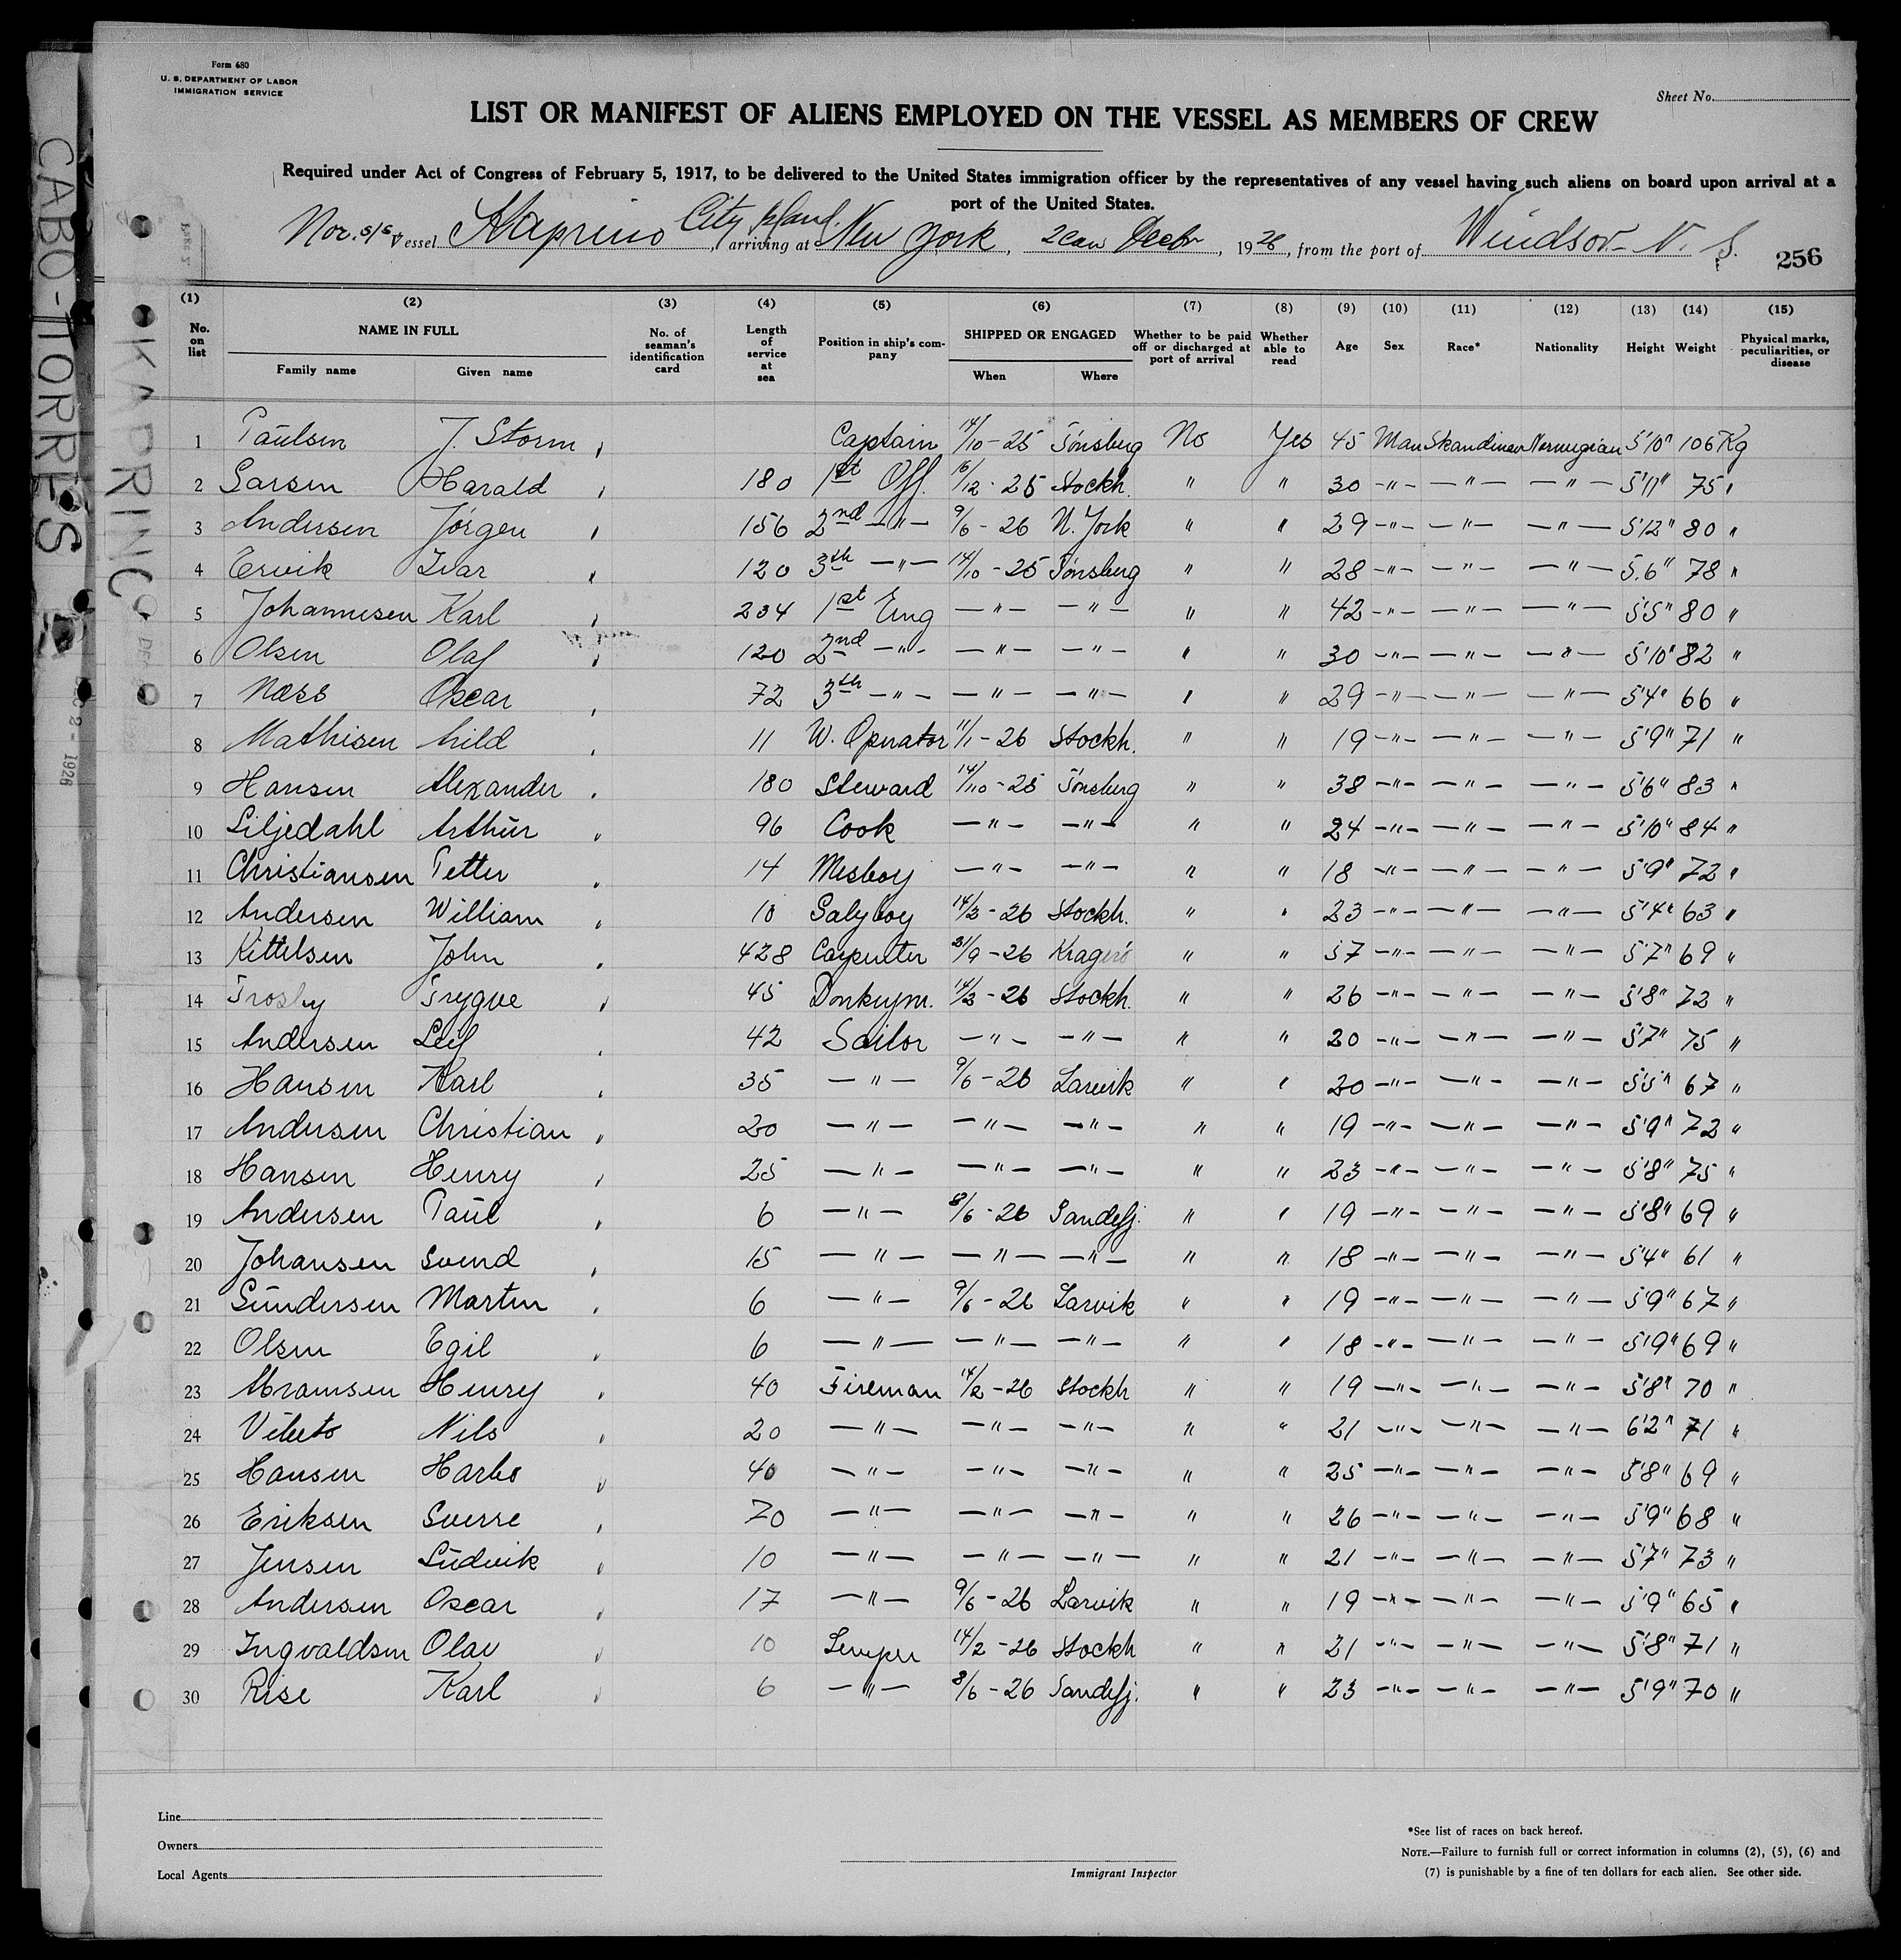 Form 680
U. S. DEPARTMENT OF LABOR
IMMIGRATION SERVICE
Sheet No.
LIST OR MANIFEST OF ALIENS EMPLOYED ON THE VESSEL AS MEMBERS OF CREW
Required under Act of Congress of February 5, 1917, to be delivered to the United States immigration officer by the representatives of any vessel having such aliens on board upon arrival at a
port of the United States.
Nor. s/s Vessel Kaprino, arriving at City Island New York, Decbr, 1926, from the port of Windsor N. S.
256
CABO-TORRES
KAPRINO
DEC 2 - 1926
(1) (2) (3) (4) (5) (6) (7) (8) (9) (10) (11) (12) (13) (14) (15)
No. on list NAME IN FULL Family name Given name No. of seaman's identification card Length of service at sea Position in ship's company SHIPPED OR ENGAGED When Where Whether to be paid off or discharged at port of arrival Whether able to read Age Sex Race* Nationality Height Weight Physical marks, peculiarities, or disease
1 Paulsen J. Storm Captain 14/10-25 Tönsberg No Yes 45 Man Skandinav Norwegian 5'10" 106 Kg
2 Larsen Harald 180 1st Off. 16/12-25 Stockh. " " 30 -"- -"- -"- 5'11" 75 "
3 Andersen Jörgen 156 2nd -"- 9/6-26 N. York " " 29 -"- -"- -"- 5'12" 80 "
4 Ervik Ivar 120 3th -"- 14/10-25 Tönsberg " " 28 -"- -"- -"- 5.6" 78 "
5 Johannesen Karl 234 1st Eng -"- -"- " " 42 -"- -"- -"- 5'5" 80 "
6 Olsen Olaf 120 2nd -"- -"- -"- " " 30 -"- -"- -"- 5'10" 82 "
7 Næss Oscar 72 3th -"- -"- -"- " " 29 -"- -"- -"- 5'4" 66 "
8 Mathisen Arild 11 W. Operator 11/1-26 Stockh. " " 19 -"- -"- -"- 5'9" 71 "
9 Hansen Alexander 180 Steward 14/10-25 Tönsberg " " 38 -"- -"- -"- 5'6" 83 "
10 Liljedahl Arthur 96 Cook -"- -"- " " 24 -"- -"- -"- 5'10" 84 "
11 Christiansen Petter 14 Mesboy -"- -"- " " 18 -"- -"- -"- 5'9" 72 "
12 Andersen William 10 Galyboy 14/2-26 Stockh. " " 23 -"- -"- -"- 5'4" 63 "
13 Kittelsen John 428 Carpenter 21/9-26 Kragerö " " 57 -"- -"- -"- 5'7" 69 "
14 Trosby Trygve 45 Donkeym. 14/2-26 Stockh. " " 26 -"- -"- -"- 5'8" 72 "
15 Andersen Leif 42 Sailor -"- -"- " " 20 -"- -"- -"- 5'7" 75 "
16 Hansen Karl 35 -"- 9/6-26 Larvik " " 20 -"- -"- -"- 5'5" 67 "
17 Andersen Christian 20 -"- -"- -"- " " 19 -"- -"- -"- 5'9" 72 "
18 Hansen Henry 25 -"- -"- -"- " " 23 -"- -"- -"- 5'8" 75 "
19 Andersen Paul 6 -"- 8/6-26 Sandefj. " " 19 -"- -"- -"- 5'8" 69 "
20 Johansen Svend 15 -"- -"- -"- " " 18 -"- -"- -"- 5'4" 61 "
21 Gundersen Martin 6 -"- 9/6-26 Larvik " " 19 -"- -"- -"- 5'9" 67 "
22 Olsen Egil 6 -"- -"- -"- " " 18 -"- -"- -"- 5'9" 69 "
23 Abramsen Henry 40 Fireman 14/2-26 Stockh " " 19 -"- -"- -"- 5'8" 70 "
24 Nils 20 -"- -"- -"- " " 21 -"- -"- -"- 6'2" 71 "
25 Hansen Harbo 40 -"- -"- -"- " " 25 -"- -"- -"- 5'8" 69 "
26 Eriksen Sverre 70 -"- -"- -"- " " 26 -"- -"- -"- 5'9" 68 "
27 Jensen Ludvik 10 -"- -"- -"- " " 21 -"- -"- -"- 5'7" 73 "
28 Andersen Oscar 17 -"- 9/6-26 Larvik " " 19 -"- -"- -"- 5'9" 65 "
29 Ingvaldsen Olav 10 Lemper 14/2-26 Stockh " " 21 -"- -"- -"- 5'8" 71 "
30 Rise Karl 6 -"- 8/6-26 Sandefj. " " 23 -"- -"- -"- 5'9" 70 "
Line
Owners
Local Agents
Immigrant Inspector
*See list of races on back hereof.
NOTE.—Failure to furnish full or correct information in columns (2), (5), (6) and
(7) is punishable by a fine of ten dollars for each alien. See other side.